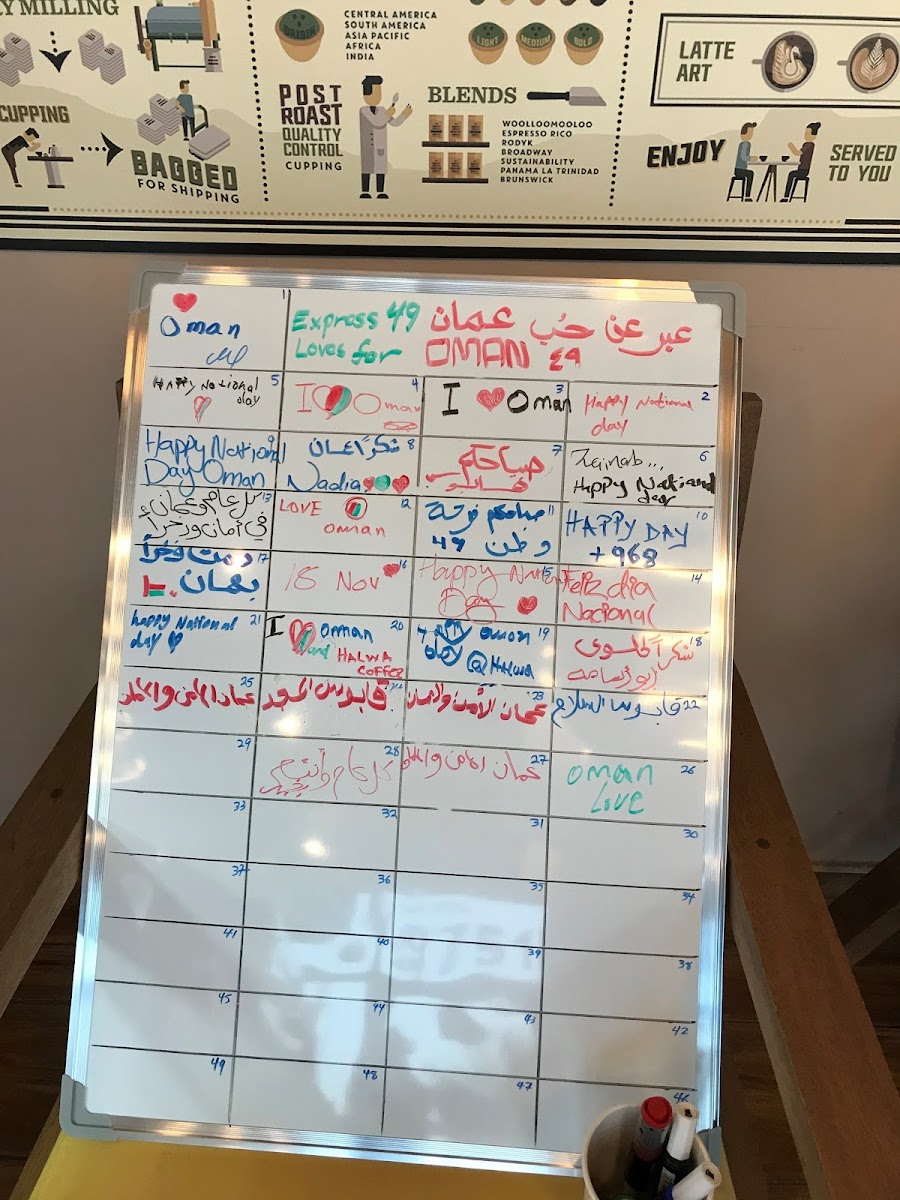 Y MILLING
CUPPING
BAGGED
FOR SHIPPING
ORIGIN
CENTRAL AMERICA
SOUTH AMERICA
ASIA PACIFIC
AFRICA
INDIA
POST
ROAST
QUALITY
CONTROL
CUPPING
LIGHT
MEDIUM
BOLD
BLENDS
WOOLLOOMOOLOO
ESPRESSO RICO
RODYK
BROADWAY
SUSTAINABILITY
PANAMA LA TRINIDAD
BRUNSWICK
LATTE
ART
ENJOY
SERVED
TO YOU
عبر عن حُب عمان
٤٩
Express 49
Loves for
OMAN
1
Oman
2
Happy National
day
3
I Oman
4
I Oman
5
HAPPY National
day
6
Zainab...
Happy National
day
7
صباحكم
8
شكراً عمان
Nadia
9
Happy National
Day Oman
10
HAPPY DAY
+968
11
صباحكم فرحة
وطن 49
12
LOVE
oman
13
كل عام وعمان
في أمان وفخراً
14
Feliz dia
Nacional
15
Happy National
Day
16
18 Nov
17
دمت فخراً
يعمان
18
شكراً حلوى
أبو أسامه
19
Happy oman
@Halwa
20
I oman
and HALWA
COFFEE
21
happy National
day
22
قابوس السلام
23
عمان الأمن والامان
24
قابوس المجد
25
عمان الامن والامان
26
oman
Love
27
عمان الامن والامان
28
كل عام وأنتم
بخير
29
30
31
32
33
34
35
36
37
38
39
40
41
42
43
44
45
46
47
48
49